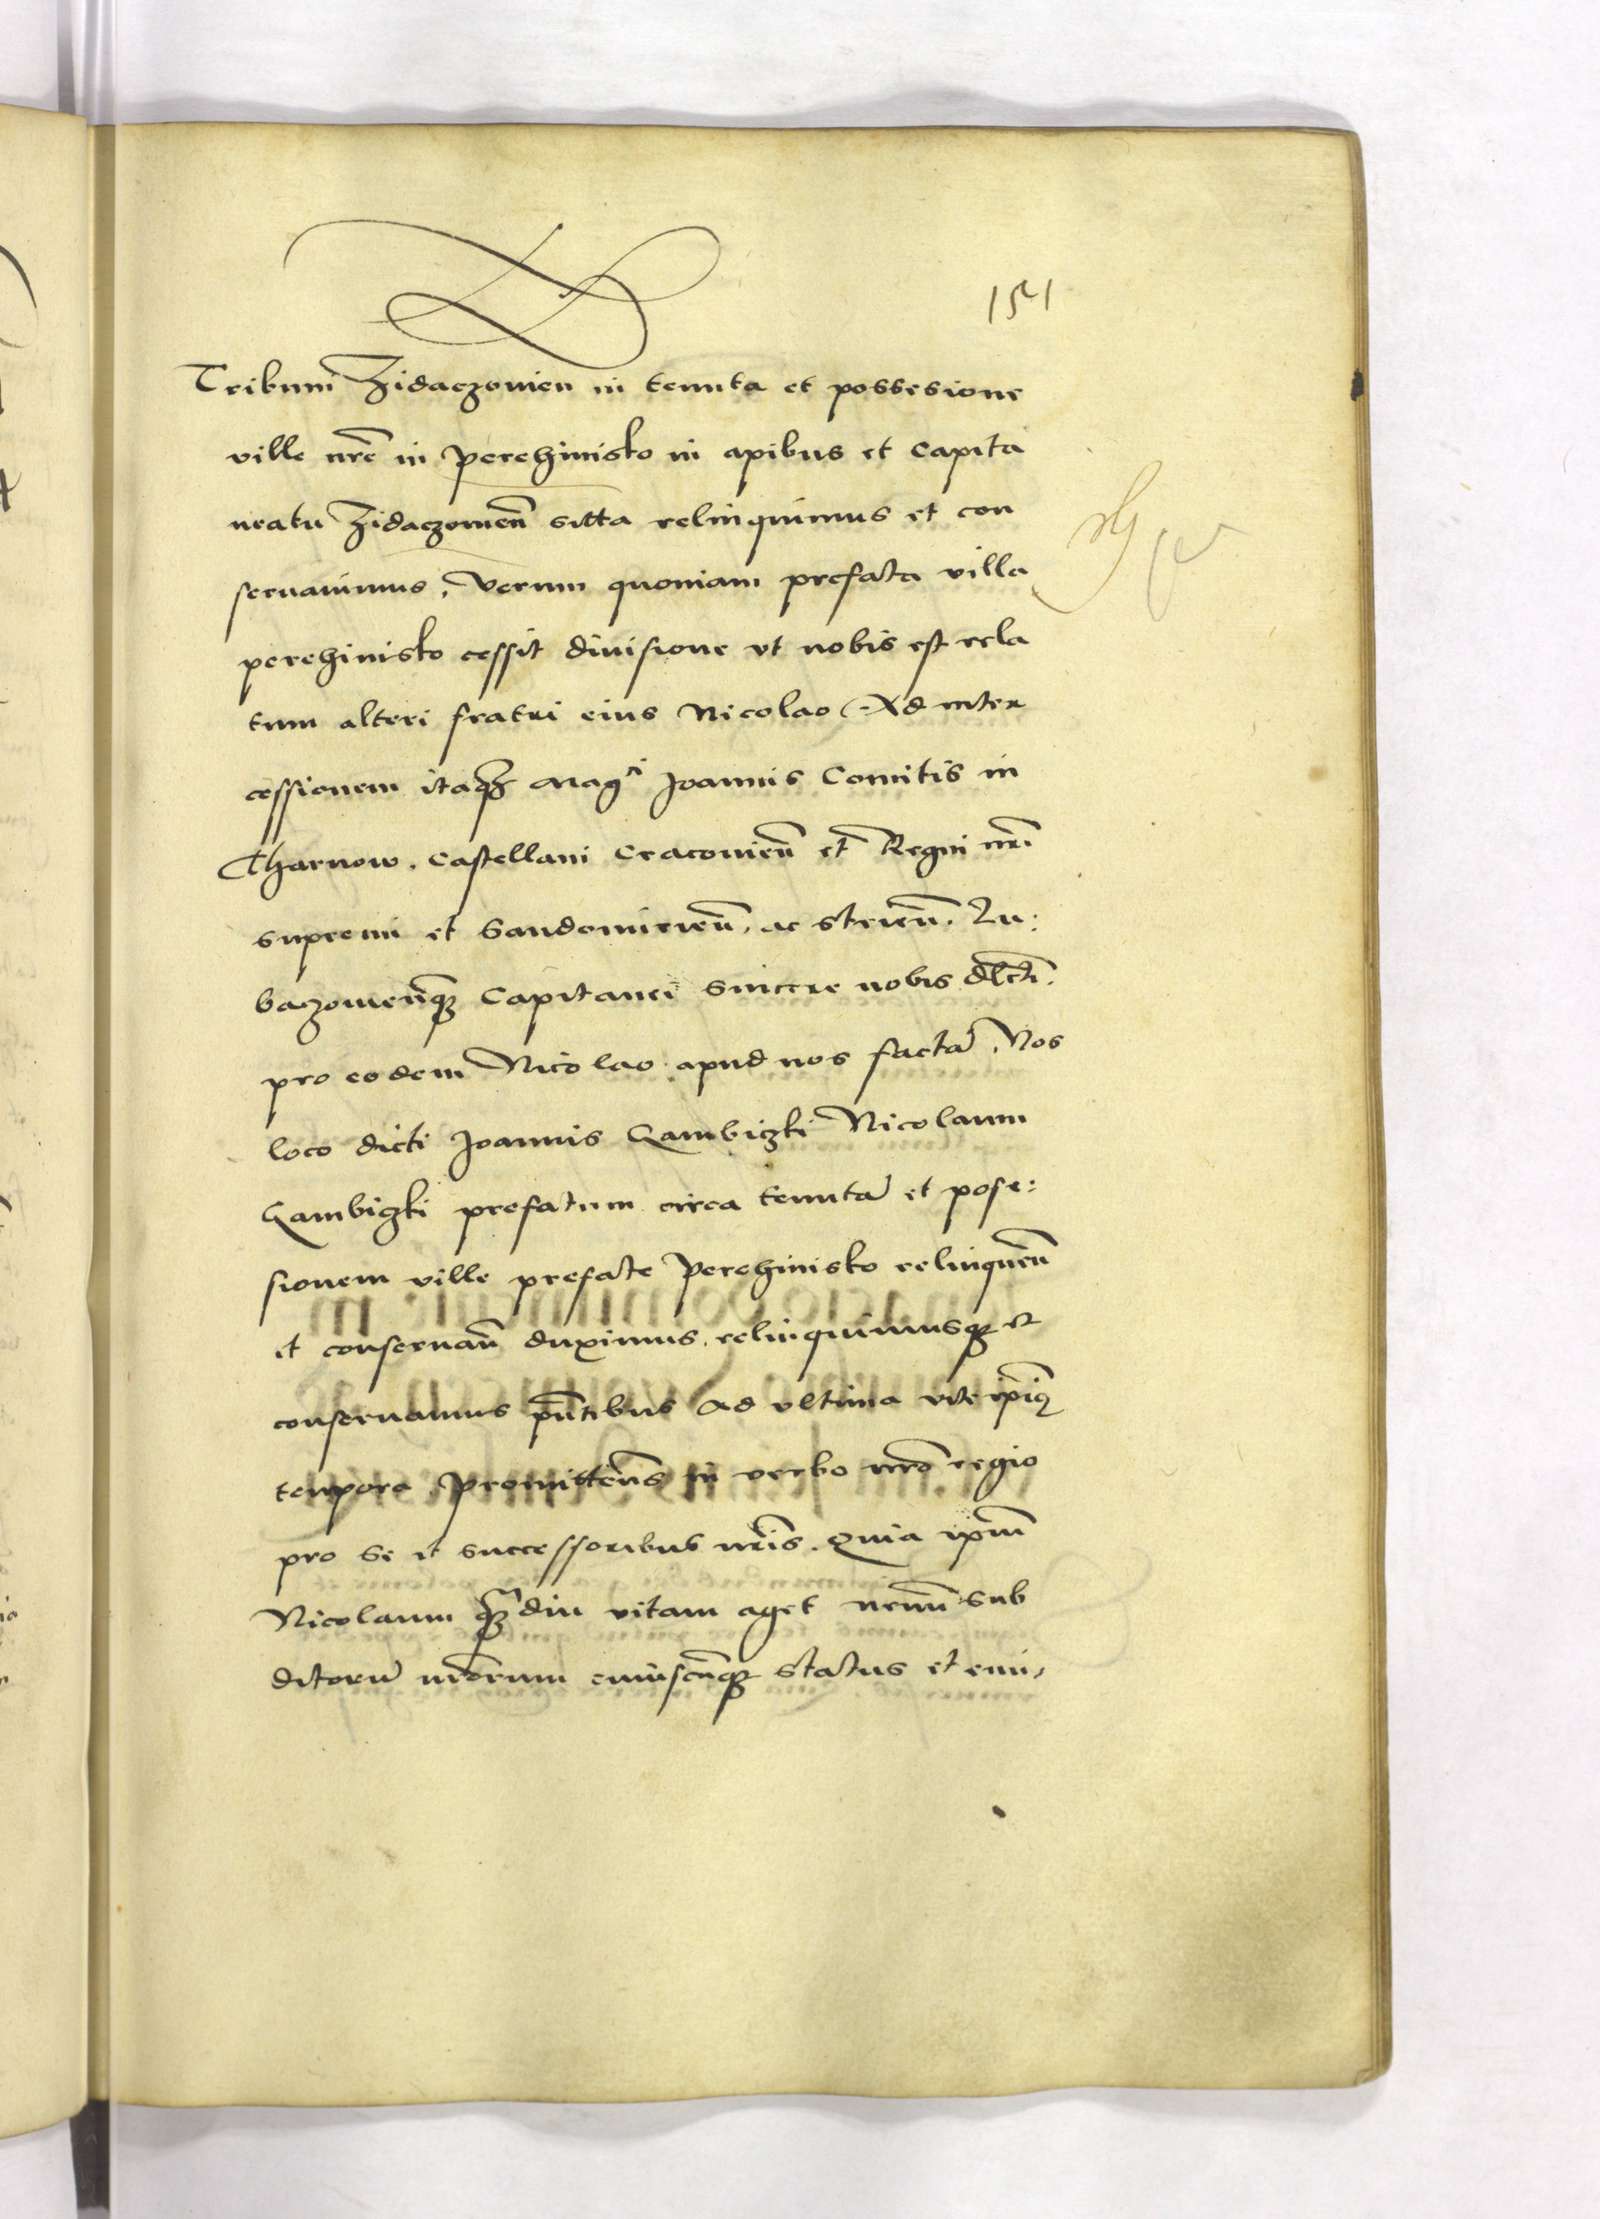 151
Tribuni Zidaczouien in tenuta et possesione
ville nr̃e in perehinisko in apibus et Capita
neatu Zidaczouieñ sitta relinquimus et con
seruauimus, Verum quoniam prefata villa
perehinisko cessit diuisione vt nobis est rela
tum alteri fratri eius Nicolao Ad inter
cessionem itaqꝫ Magci Joannis Comitis in
Tharnow. Castellani Cracouieñ et Regni nr̃i
supremi et Sandomirieñ. ac strieñ. Lu:
baczouieñqꝫ Capitanei sincere nobis dlc̃ti.
pro eodem Nicolao apud nos factã. Nos
loco dicti Joannis Gambiczki Nicolaum
Gambiczki prefatum circa tenutã et pose:
sionem ville prefate perehinisko relinqueñ
et conseruañ duximus. relinquimusqꝫ et
conseruamus pñtibus Ad vltima vite ip̃ius
tempora promitteñs in verbo nr̃o regio
pro se et successoribus nr̃is. Quia ip̃um
Nicolaum qꝫ̃diu vitam aget nemĩ sub
ditorũ nr̃orum cuiuscũqꝫ status et emi,